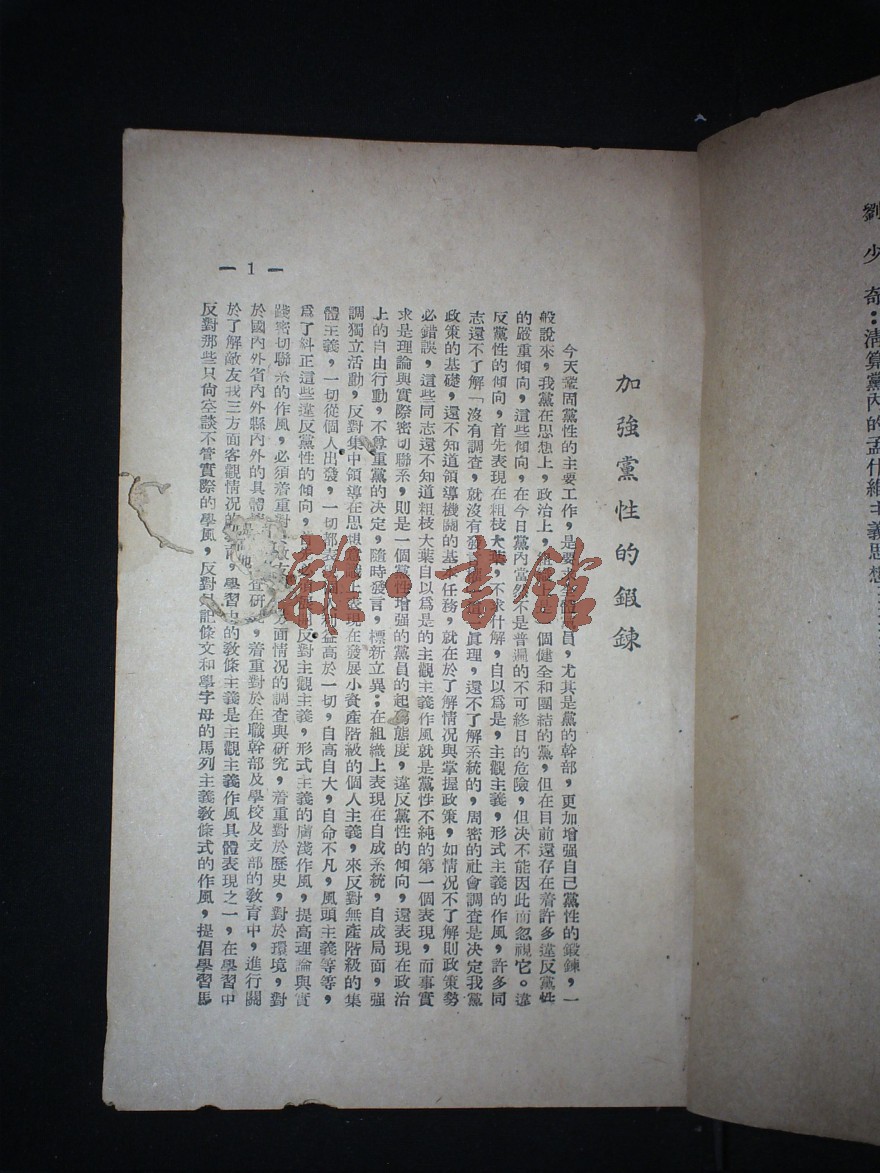 劉少奇：清算黨內的孟什維主義思想
加強黨性的鍛鍊
今天鞏固黨性的主要工作，是要 全體黨員，尤其是黨的幹部，更加增强自己黨性的鍛鍊，一
般說來，我黨在思想上，政治上，組 個健全和團結的黨，但在目前還存在着許多違反黨性
的嚴重傾向，這些傾向，在今日黨內當然不是普遍的不可終日的危險，但决不能因此而忽視它。違
反黨性的傾向，首先表現在粗枝大葉，不求什解，自以爲是，主觀主義，形式主義的作風，許多同
志還不了解「沒有調查，就沒有發 眞理，還不了解系統的，周密的社會調查是决定我黨
政策的基礎，還不知道領導機關的基 任務，就在於了解情况與掌握政策，如情况不了解則政策勢
必錯誤，這些同志還不知道粗枝大葉自以爲是的主觀主義作風就是黨性不純的第一個表現，而事實
求是理論與實際密切聯系，則是一個黨性增强的黨員的起碼態度，違反黨性的傾向，還表現在政治
上的自由行動，不尊重黨的决定，隨時發言，標新立異；在組織上表現在自成系統，自成局面，强
調獨立活動，反對集中領導在思想意識上表現在發展小資產階級的個人主義，來反對無產階級的集
體主義，一切從個人出發，一切都表 個 益高於一切，自高自大，自命不凡，風頭主義等等，
爲了糾正這些違反黨性的傾向， 反對主觀主義，形式主義的膚淺作風，提高理論與實
踐密切聯系的作風，必須着重對 敵友 方面情况的調查與研究，着重對於歷史，對於環境，對
於國內外省內外縣內外的具體 查研究，着重對於在職幹部及學校及支部的教育中，進行關
於了解敵友我三方面客觀情况的 ，學習中的教條主義是主觀主義作風具體表現之一，在學習中
反對那些只尚空談不管實際的學風，反對 記條文和學字母的馬列主義教條式的作風，提倡學習馬
— 1 —
雜·書館